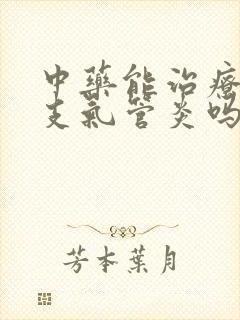 中藥能治療
支氣管炎嗎
芳本葉月